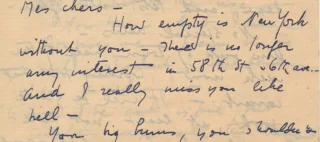 Mes chers —
How empty is New York
without you — There is no longer
any interest in 58th St &6th ave..
and I really miss you like
hell —
You big bums, you shouldn't